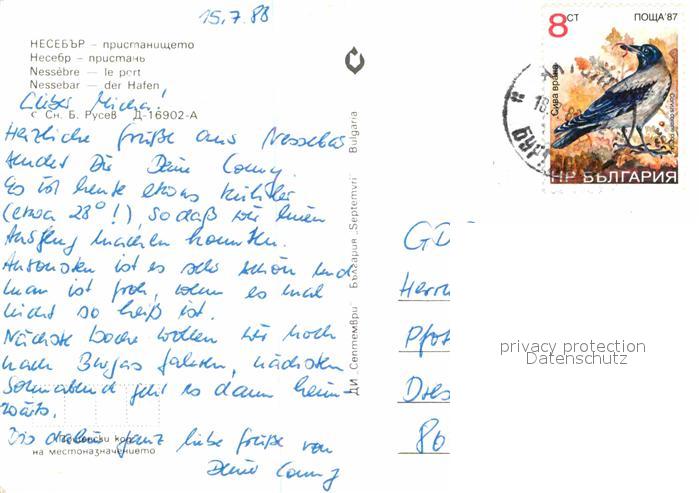 15.7.88
НЕСЕБЪР – пристанището
Несебр – пристань
Nessèbre — le port
Nessebar — der Hafen
с Сн. Б. Русев Д-16902-А
Lieber Micha!
Herzliche Grüße aus Nessebar
sendet Dir Deine Conny.
Es ist heute etwas kühler
(etwa 28° !), so daß wir einen
Ausflug machen konnten.
Ansonsten ist es sehr schön und
man ist froh, wenn es mal
nicht so heiß ist.
Nächste Woche wollen wir noch
nach Burgas fahren, nächsten
Sonnabend geht es dann heim-
wärts.
Bis dahin ganz liebe Grüße von
Deine Conny
Пощенски код
на местоназначението
ДИ „Септември" България „Septemvri" Bulgaria
8 СТ
ПОЩА'87
Сива врана
НР БЪЛГАРИЯ
БУРГ
GD
Herrn
Dres
80
privacy protection
Datenschutz